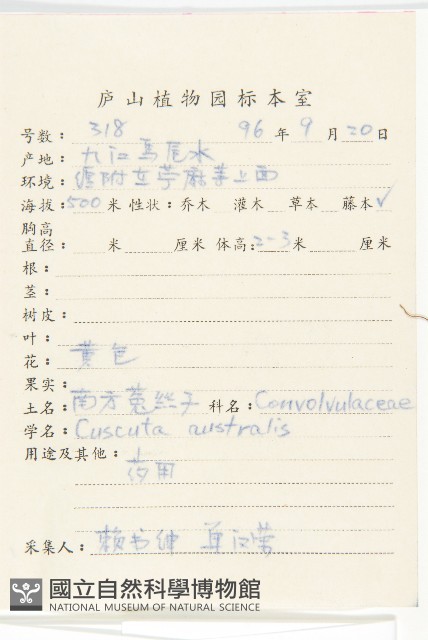 庐山植物园标本室
号数: 318 96年9月20日
产地: 九江馬尾水
环境: 缠附在苧麻等上面
海拔: 500米 性状: 乔木 灌木 草本 藤本✓
胸高
直径: 米 厘米 体高: 2-3米 厘米
根:
茎:
树皮:
叶:
花: 黄色
果实:
土名: 南方菟丝子 科名: Convolvulaceae
学名: Cuscuta australis
用途及其他:
药用
采集人: 赖书绅 单汉荣
國立自然科學博物館
NATIONAL MUSEUM OF NATURAL SCIENCE